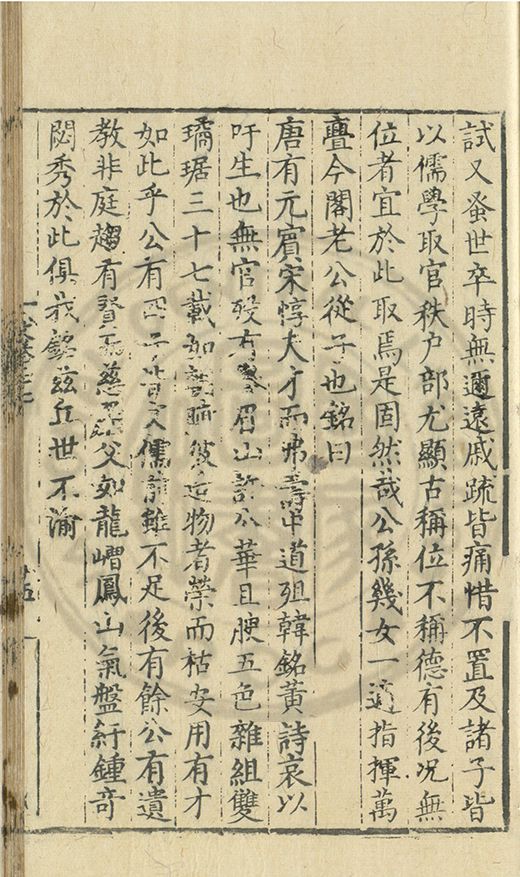 試又蚤世卒時無邇遠戚疏皆痛惜不置及諸子皆
以儒學取官秩户部尤顯古稱位不稱德有後况無
位者宜於此取焉是固然哉公孫幾女一適指揮萬
亹今閣老公從子也銘曰
唐有元賓宋惇夫才而弗壽中道殂韓銘黃詩哀以
吁生也無官殁有眉山許公華且腴五色雜組雙
璚琚三十七載如彼造物者榮而枯安用有才
如此乎公有四子皆文儒前雖不足後有餘公有遺
教非庭趨有賢慈父如龍嶆鳳山氣盤紆鍾奇
閟秀於此俱我銘兹丘世不渝